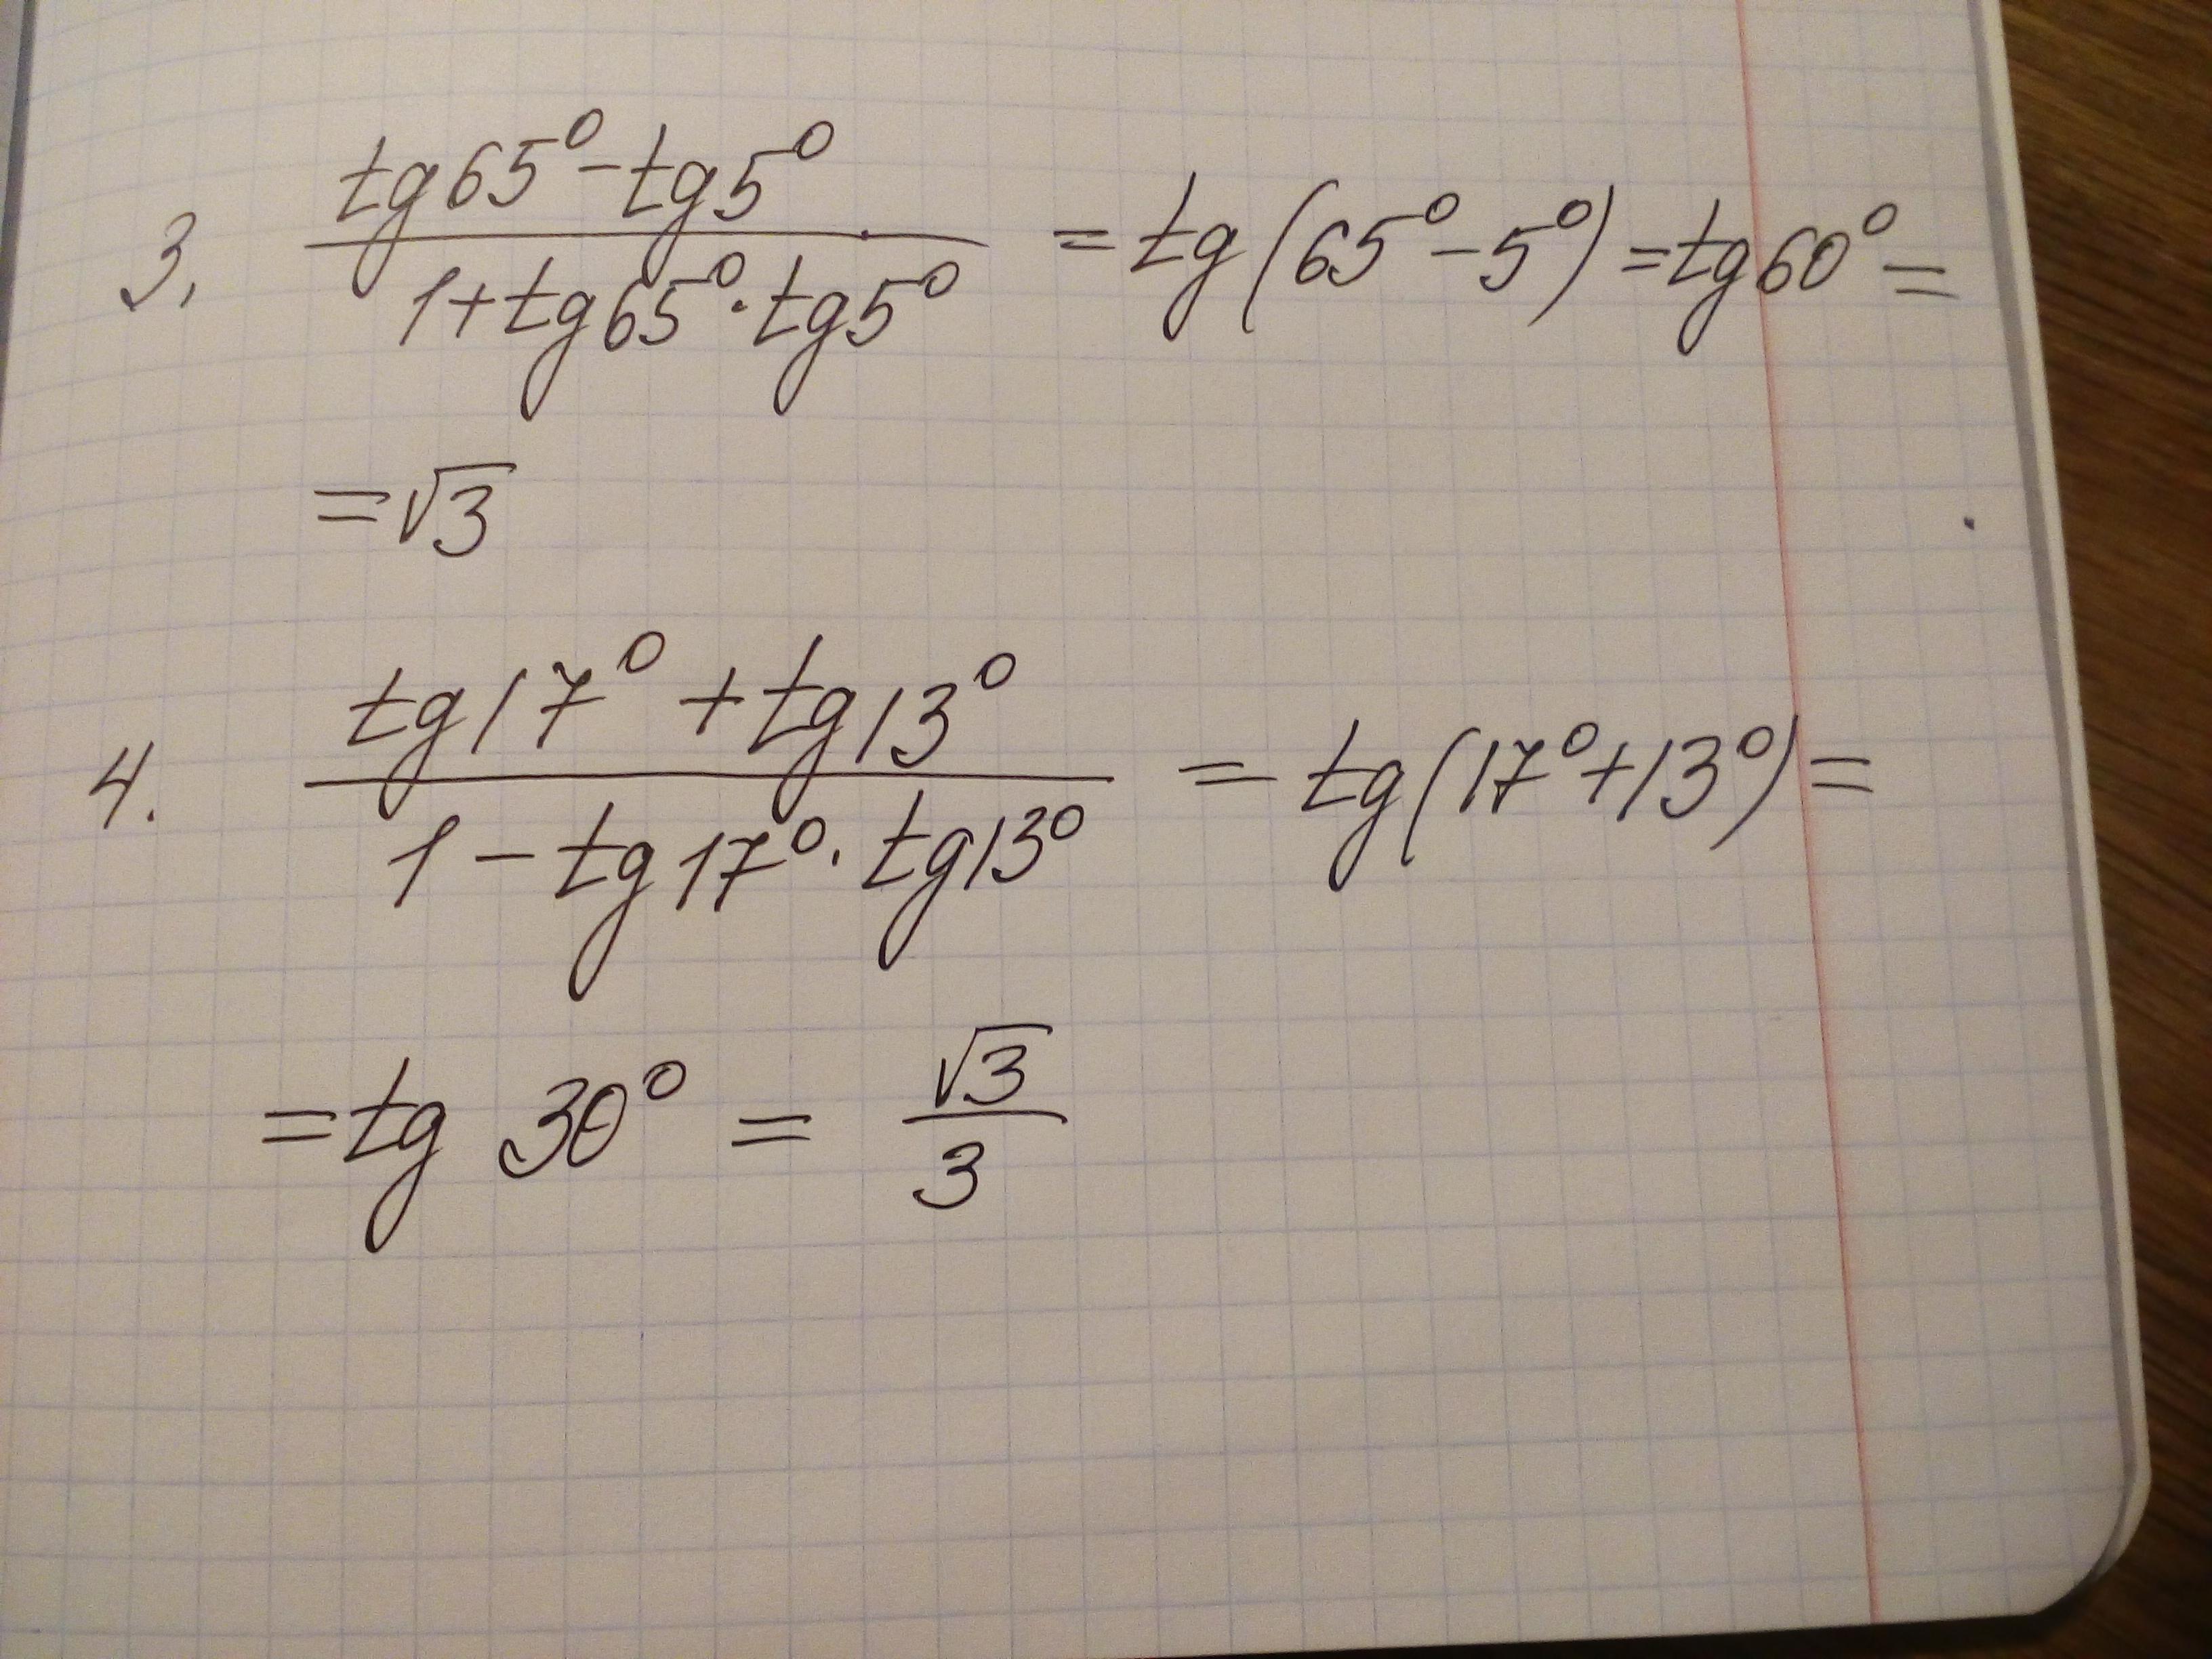 3. (tg65° - tg5°) / (1 + tg65° · tg5°) = tg(65° - 5°) = tg60° =
= √3
4. (tg17° + tg13°) / (1 - tg17° · tg13°) = tg(17° + 13°) =
= tg 30° = √3 / 3